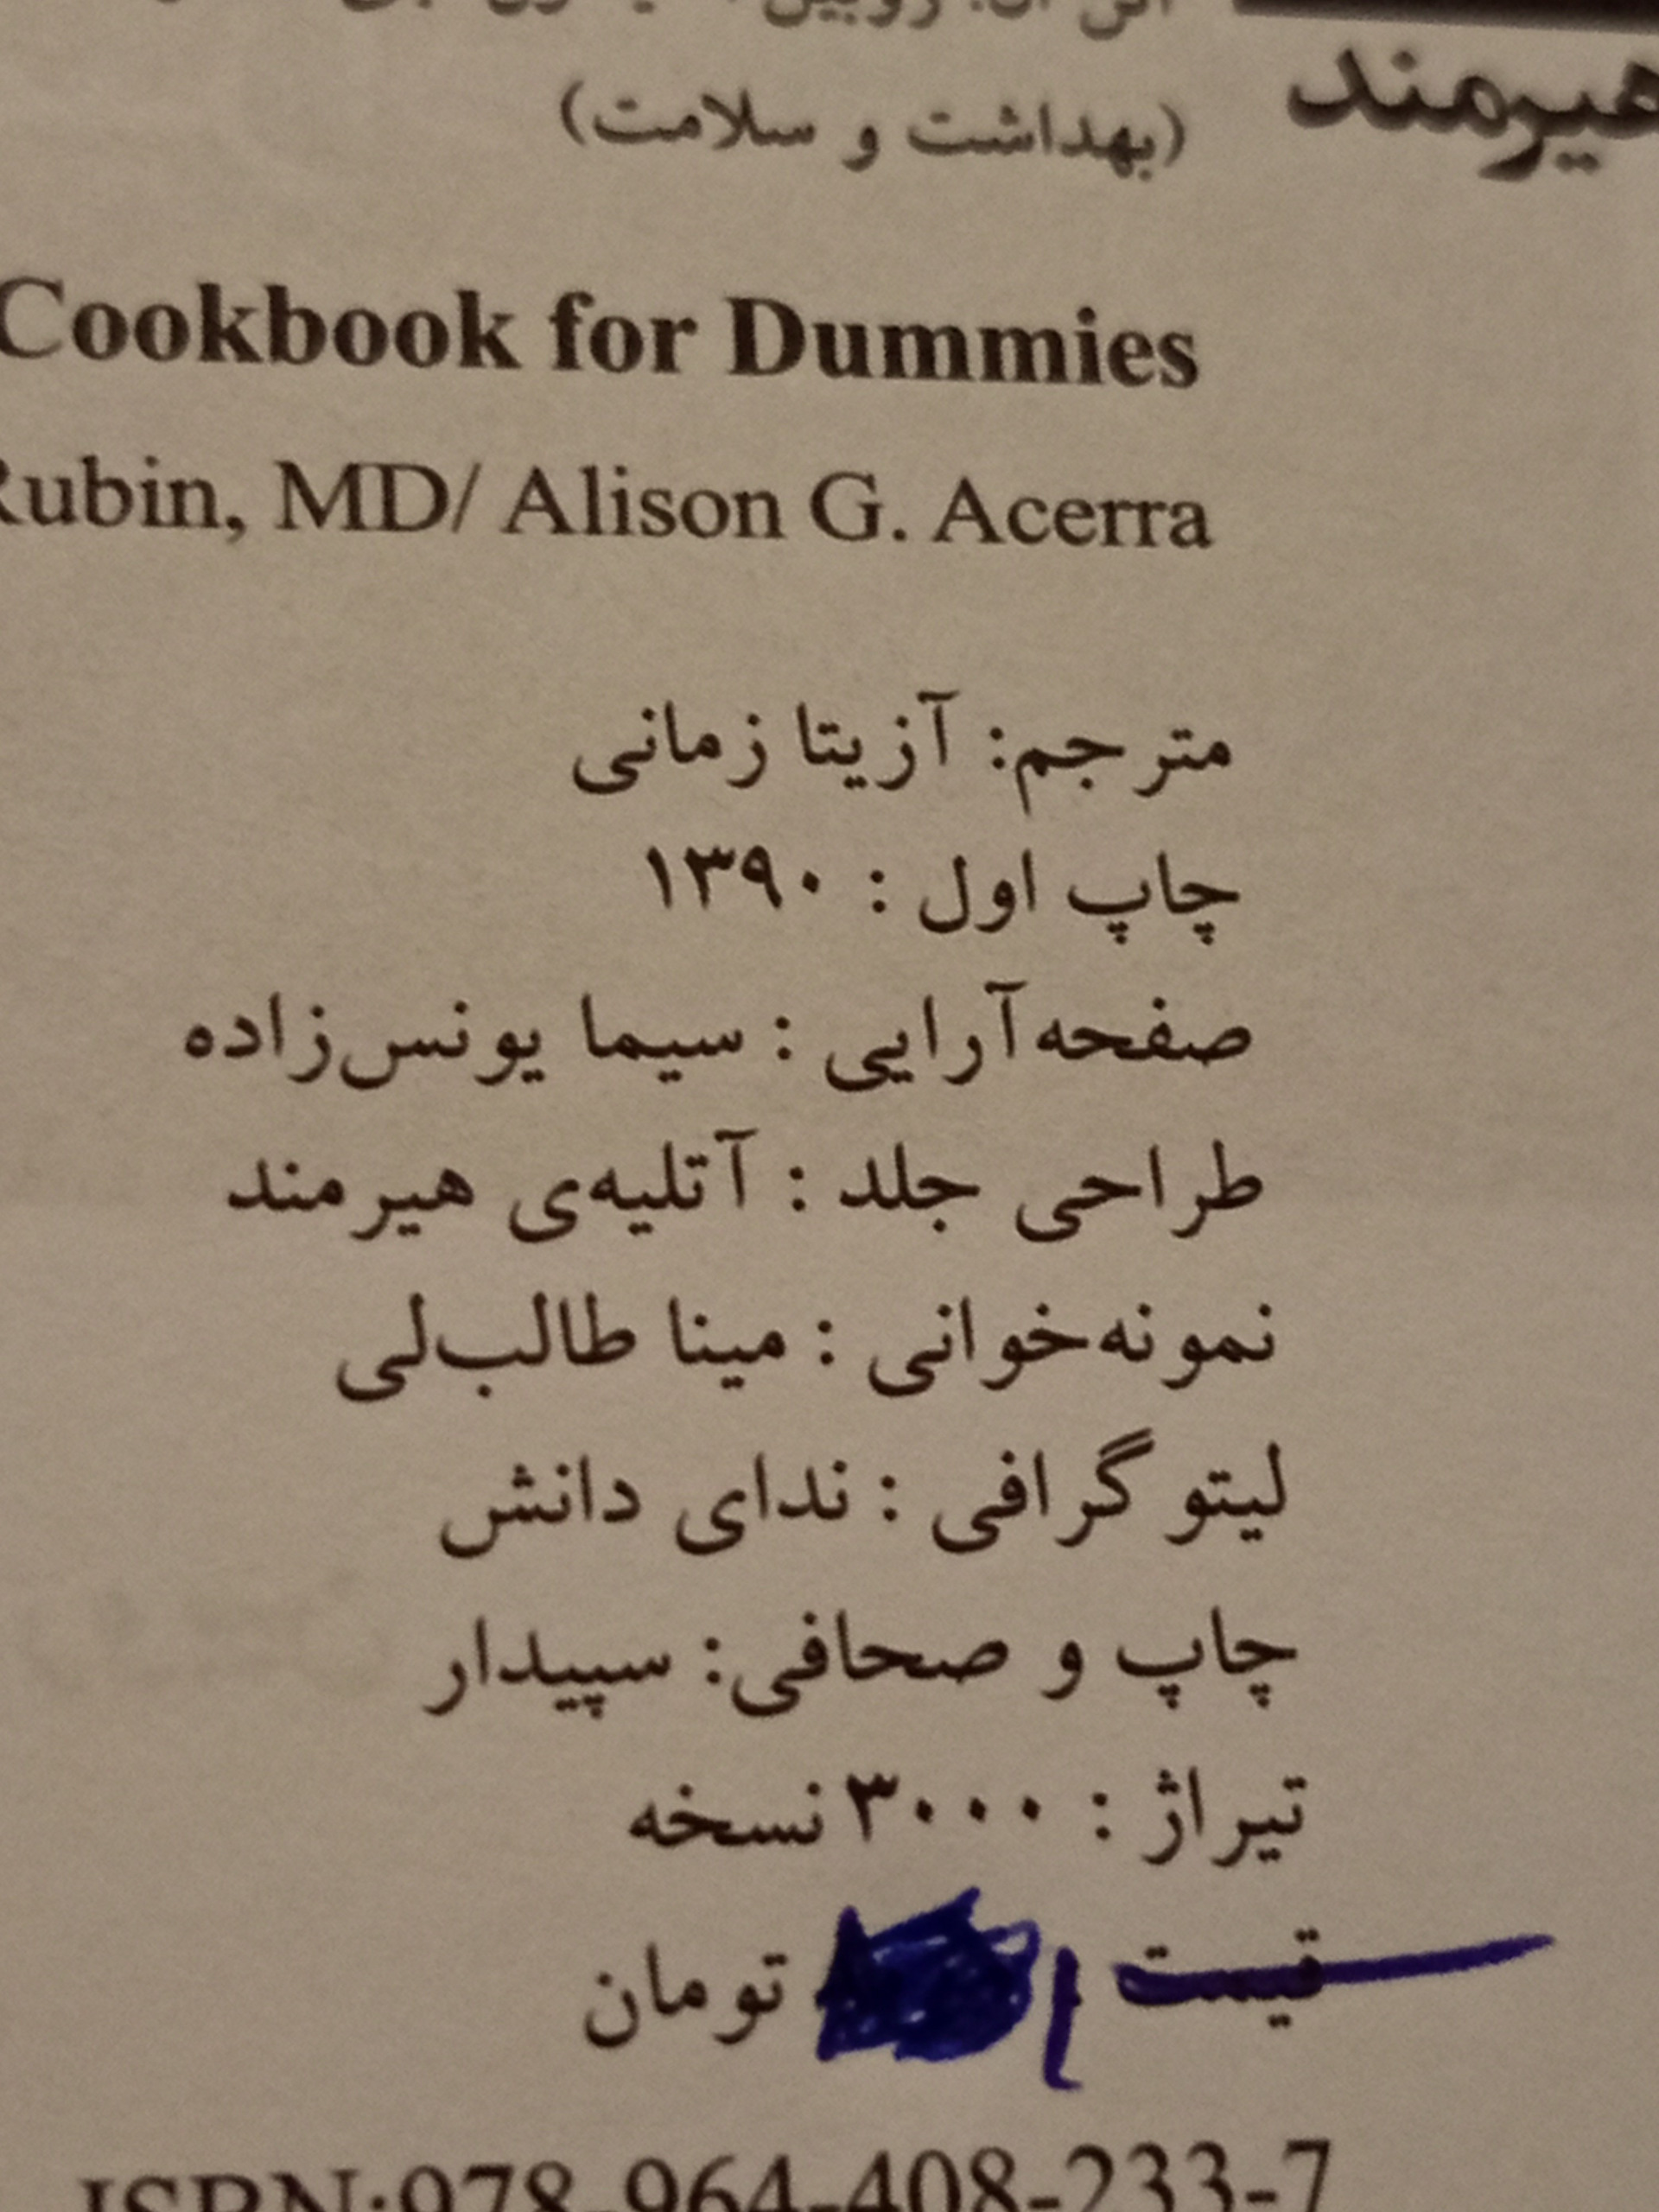 هیرمند
(بهداشت و سلامت)
Cookbook for Dummies
Rubin, MD/ Alison G. Acerra
مترجم: آزیتا زمانی
چاپ اول : ۱۳۹۰
صفحه‌آرایی : سیما یونس‌زاده
طراحی جلد : آتلیه‌ی هیرمند
نمونه‌خوانی : مینا طالب‌لی
لیتوگرافی : ندای دانش
چاپ و صحافی: سپیدار
تیراژ : ۳۰۰۰ نسخه
قیمت تومان
ISBN:978-964-408-233-7